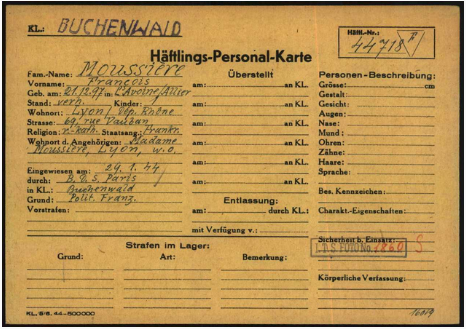 KL.: BUCHENWALD
Häftl.-Nr.:
44718
Häftlings-Personal-Karte
Fam.-Name: Moussière
Vorname: François
Geb. am: 21.12.97 in: L'Aveine/Allier
Stand: verh. Kinder: 1
Wohnort: Lyon/ Dép. Rhône
Strasse: 69, rue Vauban
Religion: r.-kath. Staatsang.: Frankr.
Wohnort d. Angehörigen: Madame
Moussière, Lyon, w.o.
Eingewiesen am: 29.1.44
durch: B.d.S. Paris
in KL.: Buchenwald
Grund: Polit. Franz.
Vorstrafen:
Überstellt
am: an KL.
am: an KL.
am: an KL.
am: an KL.
am: an KL.
am: an KL.
Entlassung:
am: durch KL.:
mit Verfügung v.:
Personen-Beschreibung:
Grösse: cm
Gestalt:
Gesicht:
Augen:
Nase:
Mund:
Ohren:
Zähne:
Haare:
Sprache:
Bes. Kennzeichen:
Charakt.-Eigenschaften:
Sicherheit b. Einsatz:
I.T.S. FOTO No. 1860 S
Körperliche Verfassung:
Strafen im Lager:
Grund: Art: Bemerkung:
KL. 5/6. 44-500000